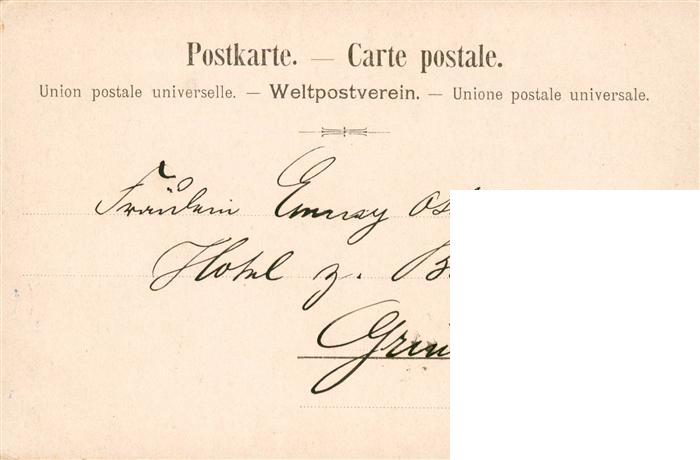 Postkarte. — Carte postale.
Union postale universelle. — Weltpostverein. — Unione postale universale.
Fräulein Emmy
Hotel z.